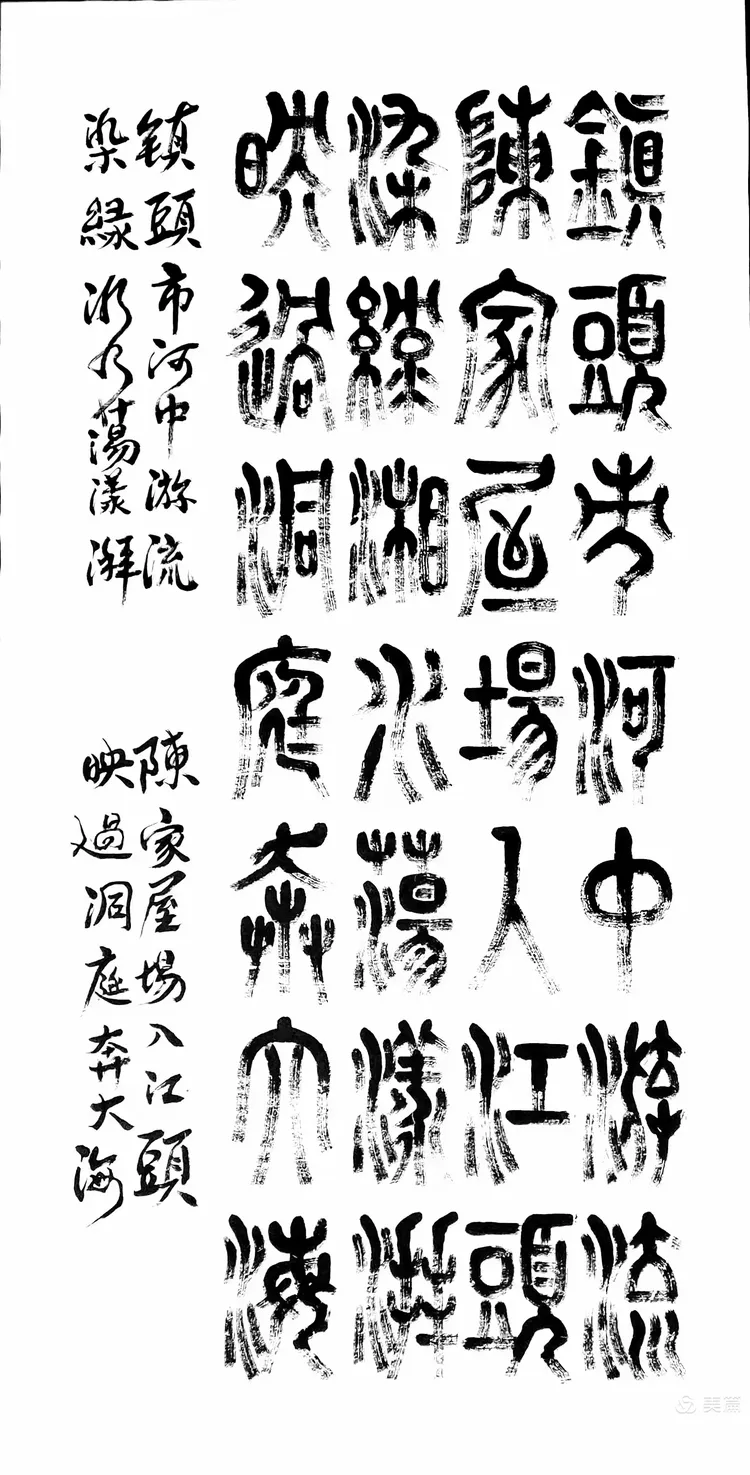 鎮頭市河中游流
陳家屋場入江頭
染綠湘水蕩漾湃
映過洞庭奔大海
镇頭市河中游流 陳家屋場入江頭
染緑湘水蕩漾湃 映過洞庭奔大海
美篇